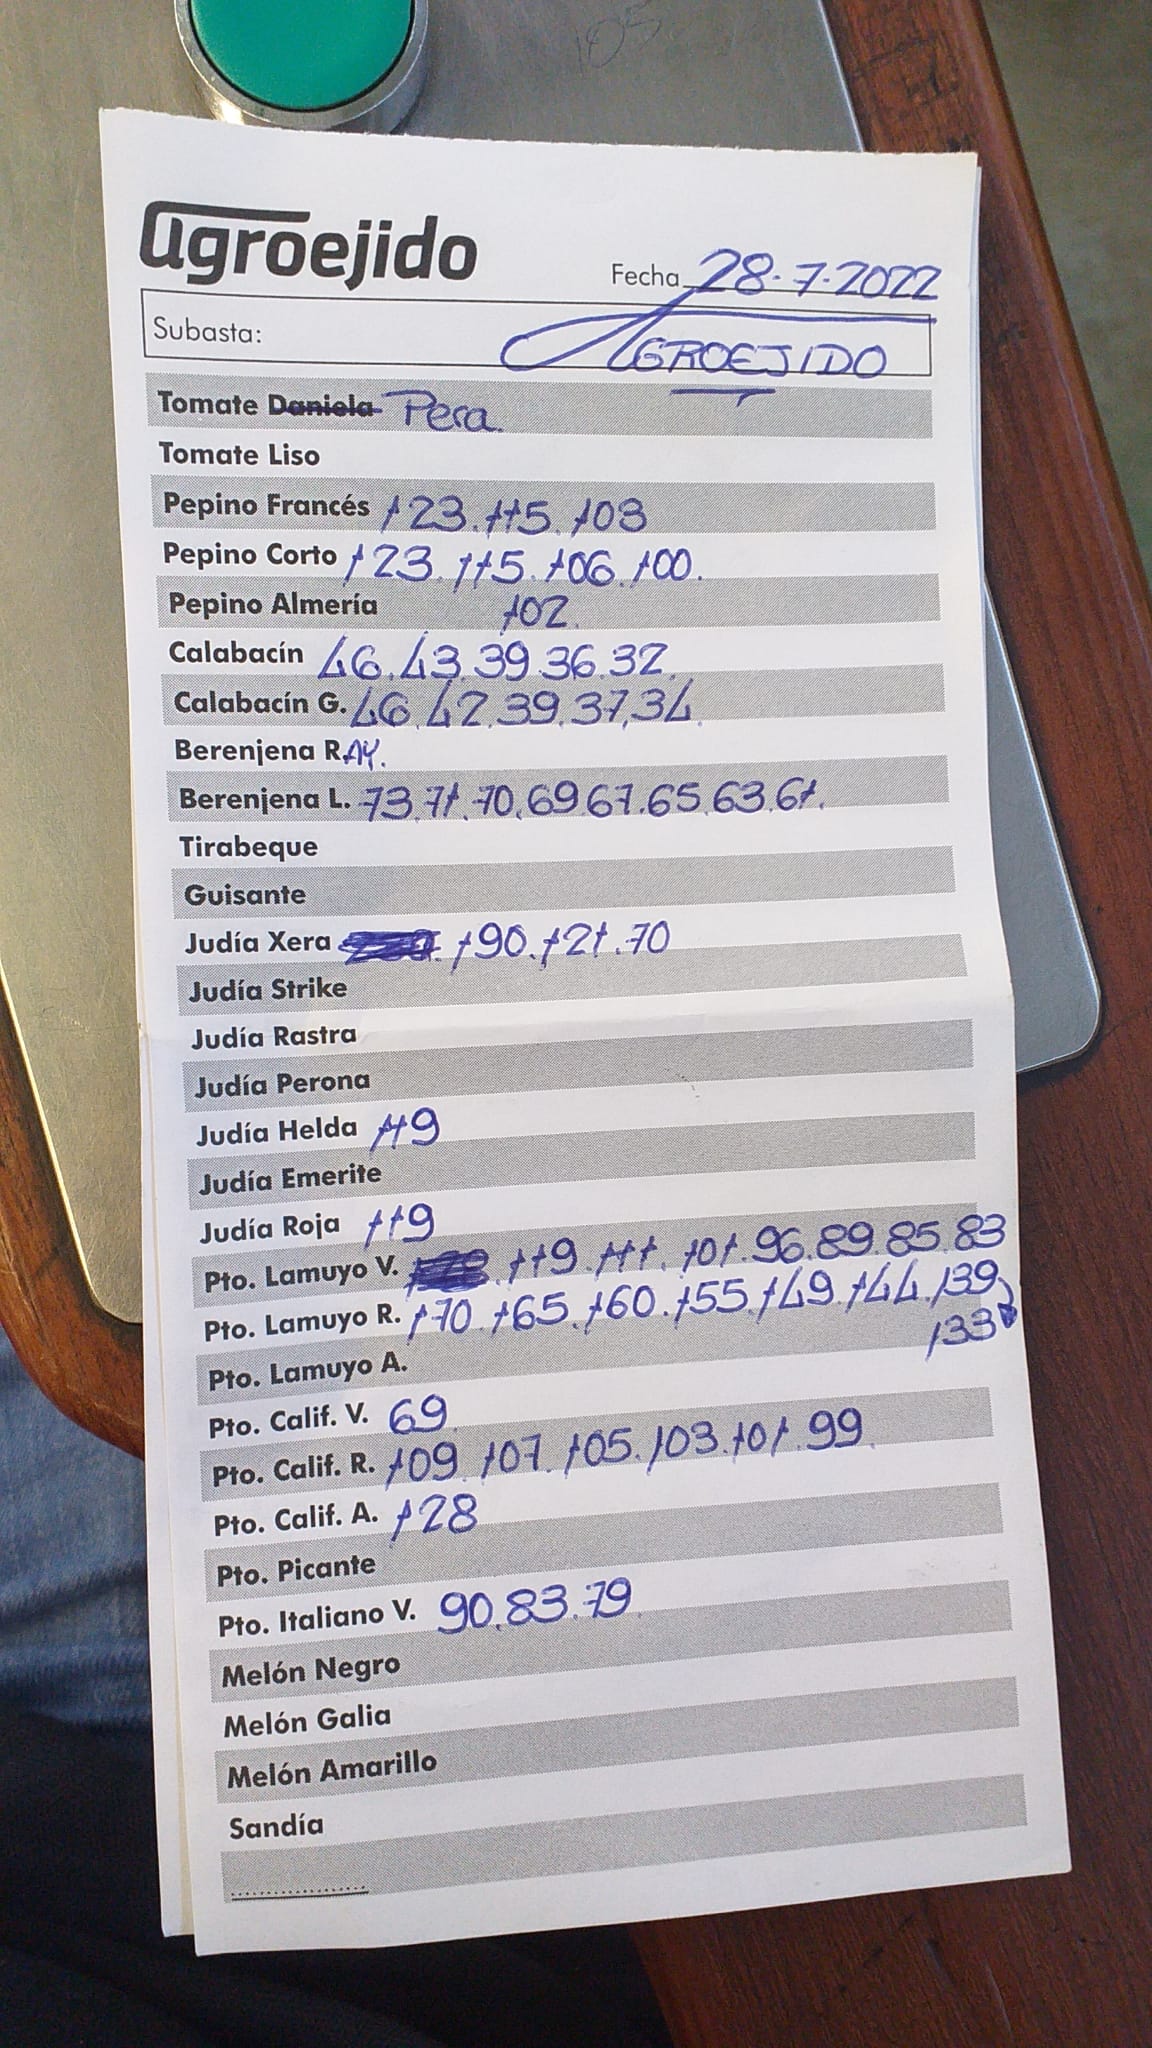 agroejido
Fecha 28-7-2022
Subasta: AGROEJIDO
Tomate Daniela Pera.
Tomate Liso
Pepino Francés 123.115.103
Pepino Corto 123.115.106.100.
Pepino Almería 102.
Calabacín 46.43.39.36.32.
Calabacín G. 46.42.39.37.34.
Berenjena R.AY.
Berenjena L. 73.71.70.69.67.65.63.61.
Tirabeque
Guisante
Judía Xera 190.121.70
Judía Strike
Judía Rastra
Judía Perona
Judía Helda 119
Judía Emerite
Judía Roja 119
Pto. Lamuyo V. 119.111.101.96.89.85.83
Pto. Lamuyo R. 170.165.160.155.149.144.139
133
Pto. Lamuyo A.
Pto. Calif. V. 69.
Pto. Calif. R. 109.107.105.103.101.99.
Pto. Calif. A. 128
Pto. Picante
Pto. Italiano V. 90.83.79.
Melón Negro
Melón Galia
Melón Amarillo
Sandía